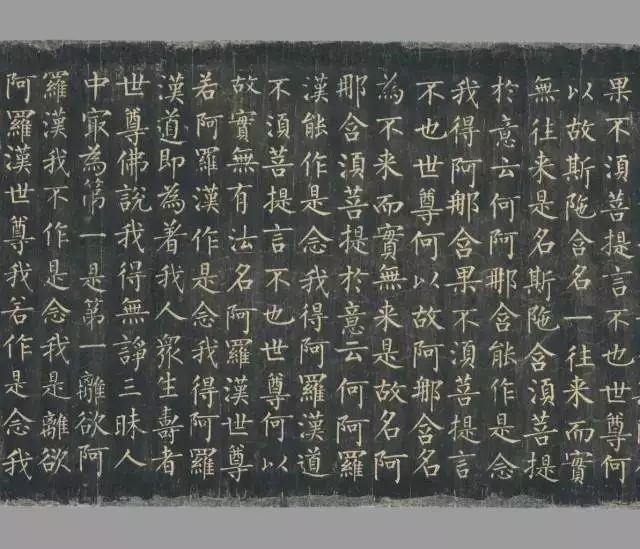 果不須菩提言不也世尊何
以故斯陁含名一往来而實
無往来是名斯陁含須菩提
於意云何阿那含能作是念
我得阿那含果不須菩提言
不也世尊何以故阿那含名
為不来而實無来是故名阿
那含須菩提於意云何阿羅
漢能作是念我得阿羅漢道
不須菩提言不也世尊何以
故實無有法名阿羅漢世尊
若阿羅漢作是念我得阿羅
漢道即為著我人眾生壽者
世尊佛說我得無諍三昧人
中冣為第一是第一離欲阿
羅漢我不作是念我是離欲
阿羅漢世尊我若作是念我